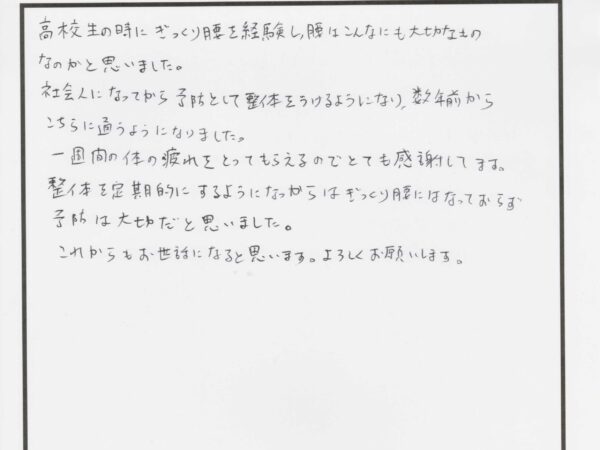 高校生の時に ぎっくり腰を経験し、腰はこんなにも大切なもの
なのかと思いました。
社会人になってから予防として整体をうけるようになり、数年前から
こちらに通うようになりました。
一週間の体の疲れをとってもらえるのでとても感謝してます。
整体を定期的にするようになっからはぎっくり腰にはなっておらず
予防は大切だと思いました。
これからもお世話になると思います。よろしくお願いします。